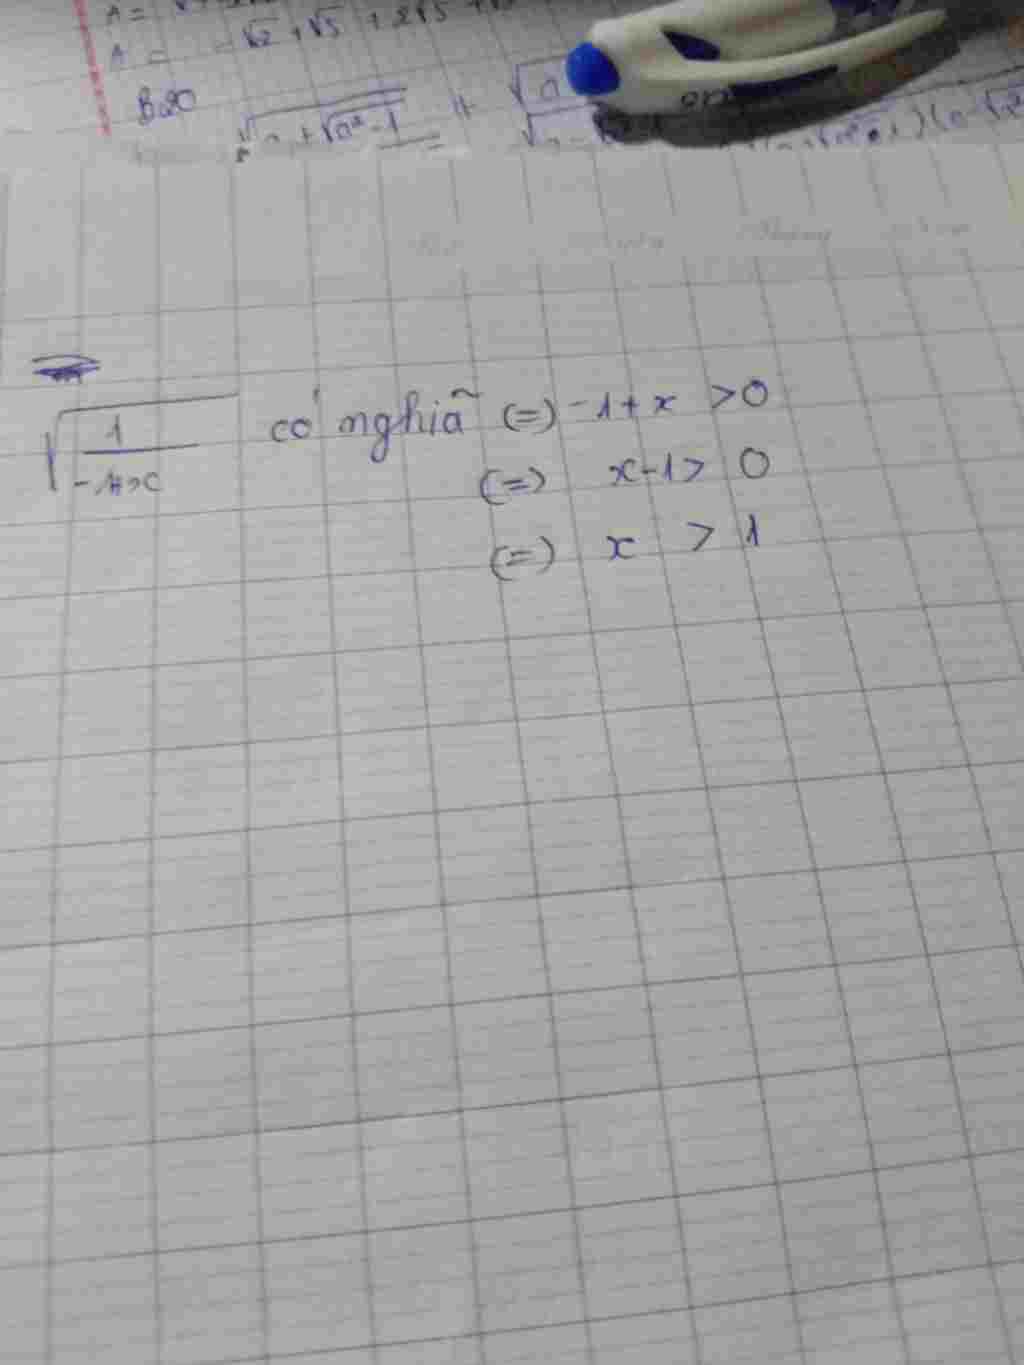 A =
A = - √2 + √5 + 2√5 +
B20
√(a + √(a² - 1)) +
√(1/(-1+x)) có nghĩa (=) -1 + x > 0
(=) x - 1 > 0
(=) x > 1